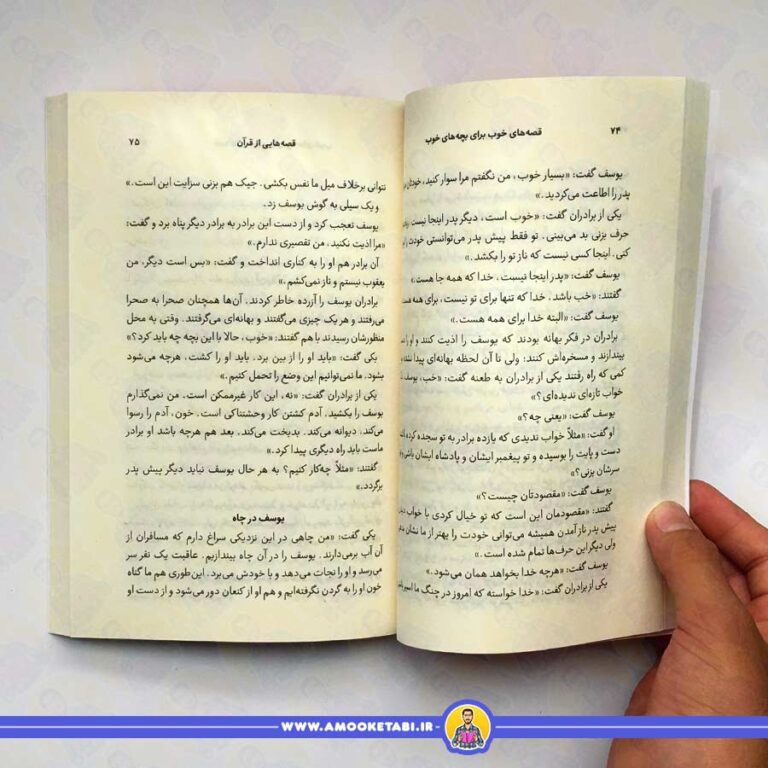 ۷۴
قصه‌های خوب برای بچه‌های خوب
یوسف گفت: «بسیار خوب، من نگفتم مرا سوار کنید، خودتان
پدر را اطاعت می‌کردید.»
یکی از برادران گفت: «خوب است، دیگر پدر اینجا نیست.
حرف بزنی بد می‌بینی. تو فقط پیش پدر می‌توانستی خودت را
کنی. اینجا کسی نیست که ناز تو را بکشد.»
یوسف گفت: «پدر اینجا نیست، خدا که همه جا هست.»
گفتند: «خب باشد. خدا که تنها برای تو نیست، برای همه
یوسف گفت: «البته خدا برای همه هست.»
برادران در فکر بهانه بودند که یوسف را اذیت کنند و او را
بیندازند و مسخره‌اش کنند؛ ولی تا آن لحظه بهانه‌ای پیدا
کمی که راه رفتند یکی از برادران به طعنه گفت: «خب، یوسف
خواب تازه‌ای ندیده‌ای؟»
یوسف گفت: «یعنی چه؟»
او گفت: «مثلاً خواب ندیدی که یازده برادر به تو سجده کرده
دست و پایت را بوسیده و تو پیغمبر ایشان و پادشاه ایشان
سرشان بزنی؟»
یوسف گفت: «مقصودتان چیست؟»
گفتند: «مقصودمان این است که تو خیال کردی با خواب
پیش پدر ناز آمدن همیشه می‌توانی خودت را بهتر از ما نشان
ولی دیگر این حرف‌ها تمام شده است.»
یوسف گفت: «هرچه خدا بخواهد همان می‌شود.»
یکی از برادران گفت: «خدا خواسته که امروز در چنگ ما اسیر
قصه‌هایی از قرآن
۷۵
نتوانی برخلاف میل ما نفس بکشی. جیک هم بزنی سزایت این است.»
و یک سیلی به گوش یوسف زد.
یوسف تعجب کرد و از دست این برادر به برادر دیگر پناه برد و گفت:
«مرا اذیت نکنید، من تقصیری ندارم.»
آن برادر هم او را به کناری انداخت و گفت: «بس است دیگر، من
یعقوب نیستم و ناز نمی‌کشم.»
برادران یوسف را آزرده خاطر کردند. آن‌ها همچنان صحرا به صحرا
می‌رفتند و هر یک چیزی می‌گفتند و بهانه‌ای می‌گرفتند. وقتی به محل
منظورشان رسیدند با هم گفتند: «خوب، حالا با این بچه چه باید کرد؟»
یکی گفت: «باید او را از بین برد. باید او را کشت، هرچه می‌شود
بشود. ما نمی‌توانیم این وضع را تحمل کنیم.»
یکی از برادران گفت: «نه، این کار غیرممکن است. من نمی‌گذارم
یوسف را بکشید. آدم کشتن کار وحشتناکی است. خون، آدم را رسوا
می‌کند، دیوانه می‌کند. بدبخت می‌کند. بعد هم هرچه باشد او برادر
ماست باید راه دیگری پیدا کرد.»
گفتند: «مثلاً چه‌کار کنیم؟ به هر حال یوسف نباید دیگر پیش پدر
برگردد.»
یوسف در چاه
یکی گفت: «من چاهی در این نزدیکی سراغ دارم که مسافران از
آن آب برمی‌دارند. یوسف را در آن چاه بیندازیم. عاقبت یک نفر سر
می‌رسد و او را نجات می‌دهد و با خودش می‌برد. این‌طوری هم ما گناه
خون او را به گردن نگرفته‌ایم و هم او از کنعان دور می‌شود و از دست او
WWW.AMOOKETABI.IR